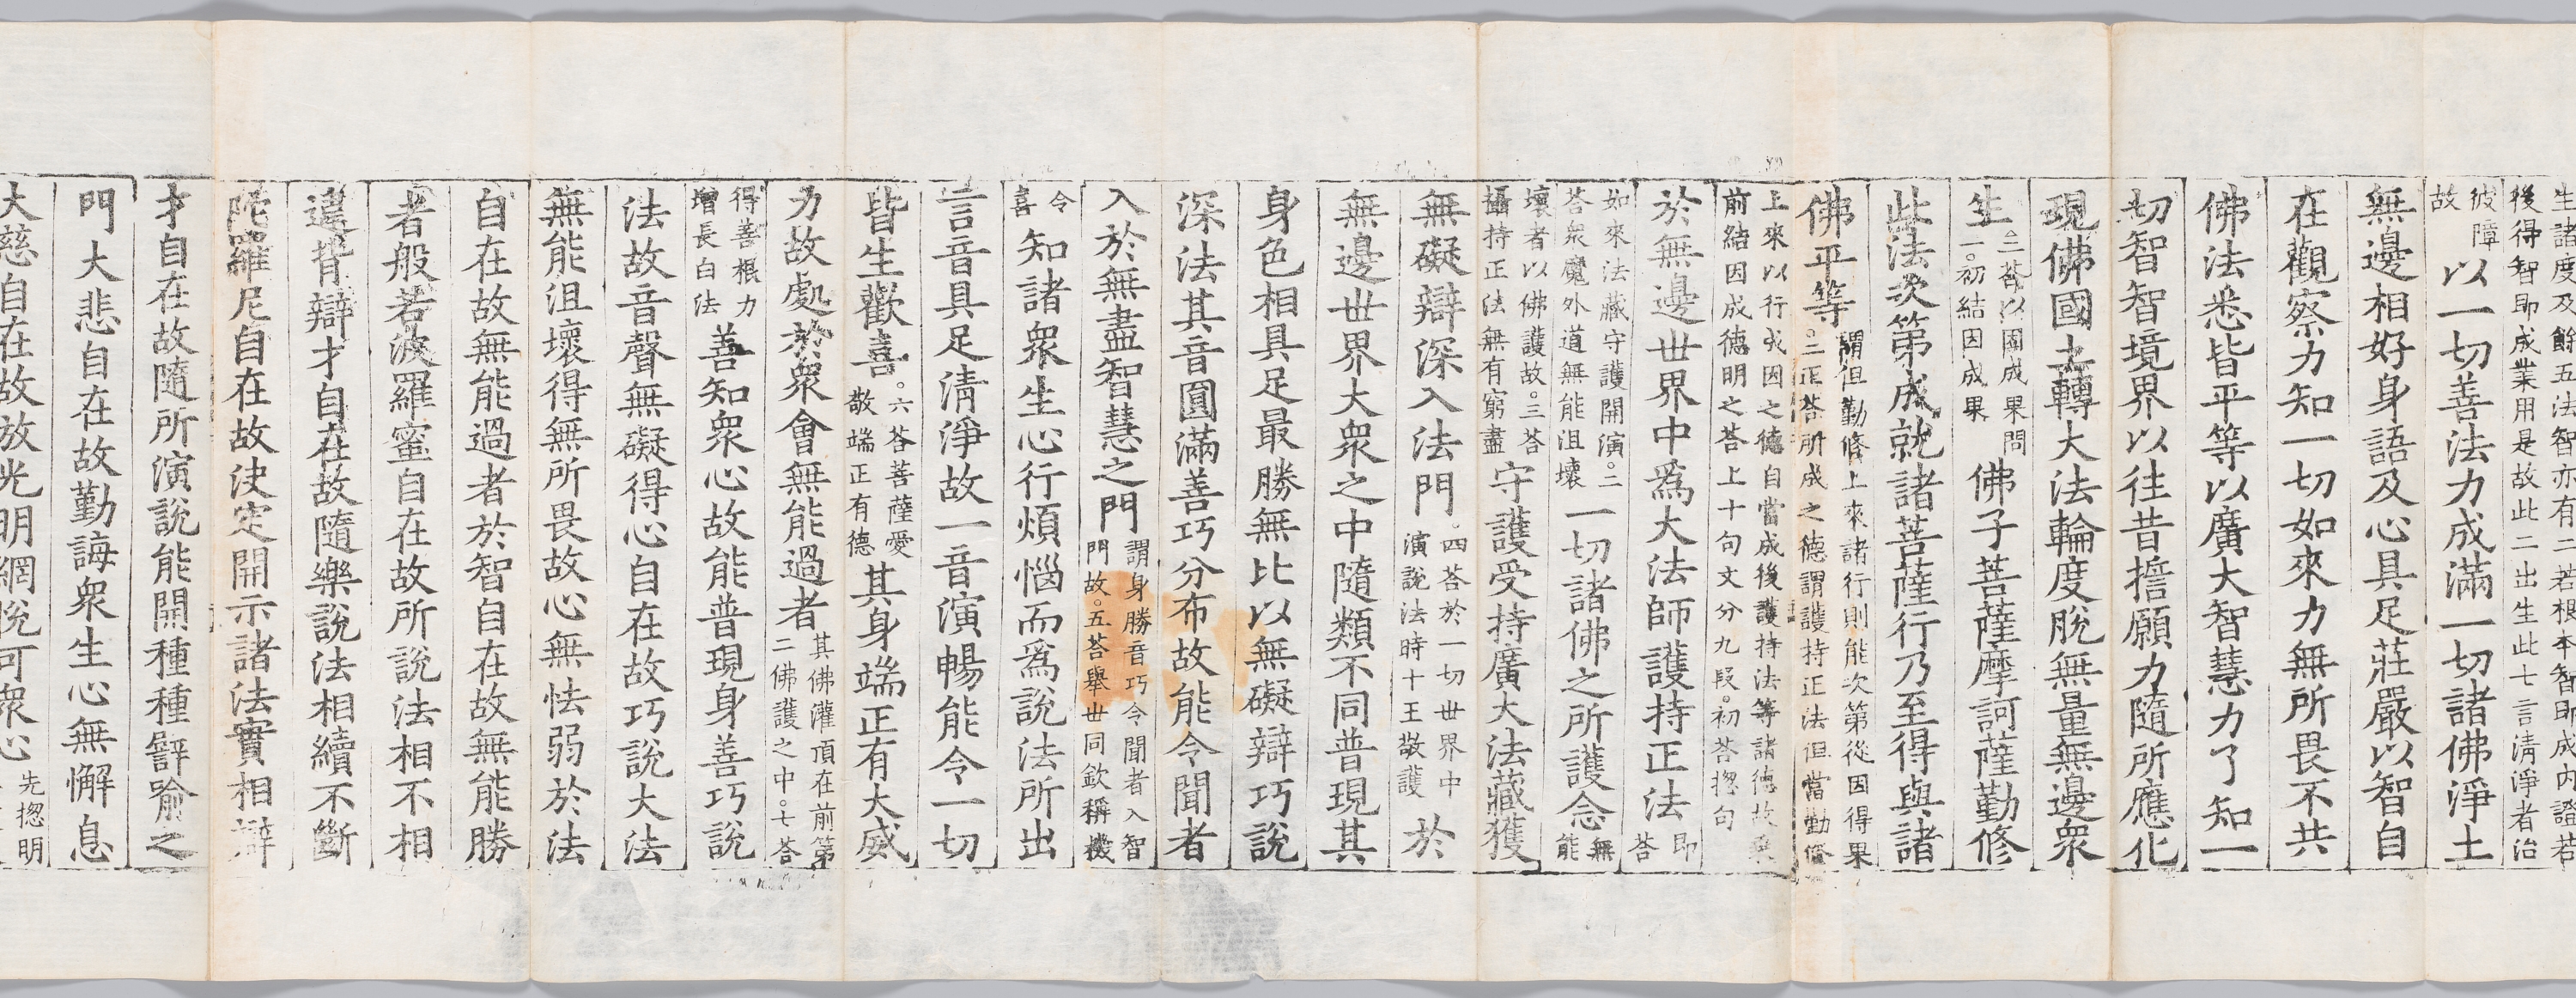 生諸度及餘五法智亦有二若根本智即成內證若
後得智即成業用是故此二出生此七言清淨者治
彼障
故
以一切善法力成滿一切諸佛淨土
無邊相好身語及心具足莊嚴以智自
在觀察力知一切如來力無所畏不共
佛法悉皆平等以廣大智慧力了知一
切智智境界以往昔擔願力隨所應化
現佛國土轉大法輪度脫無量無邊衆
生
。二荅以園成果問
一。初結因成果
佛子菩薩摩訶薩勤修
此法次第成就諸菩薩行乃至得與諸
佛平等
謂但勤修上來諸行則能次第從因得果
。二正荅所成之德謂護持正法但當勤修
上來以行成因之德自當成後護持法等諸德故
前結因成德明之荅上十句文分九段。初荅揔句
於無邊世界中爲大法師護持正法
即
荅
如來法藏守護開演。二
荅衆魔外道無能沮壞
一切諸佛之所護念
無
能
壞者以佛護故。三荅
攝持正法無有窮盡
守護受持廣大法藏獲
無礙辯深入法門
。四荅於一切世界中
演說法時十王敬護
於
無邊世界大衆之中隨類不同普現其
身色相具足最勝無比以無礙辯巧說
深法其音圓滿善巧分布故能令聞者
入於無盡智慧之門
謂身勝音巧令聞者入智
門故。五荅舉世同欽稱機
令
喜
知諸衆生心行煩惱而爲說法所出
言音具足淸淨故一音演暢能令一切
皆生歡喜
。六荅菩薩愛
敬
端正有德
其身端正有大威
力故處於衆會無能過者
其佛灌頂在前第
二佛護之中。七荅
得善根力
增長白法
善知衆心故能普現身善巧說
法故音聲無礙得心自在故巧說大法
無能沮壞得無所畏故心無怯弱於法
自在故無能過者於智自在故無能勝
者般若波羅蜜自在故所說法相不相
違背辯才自在故隨樂說法相續不斷
陀羅尼自在故決定開示諸法實相辯
才自在故隨所演說能開種種譬喻之
門大悲自在故勤誨衆生心無懈息
大慈自在故放光明網悅可衆心
先揔明